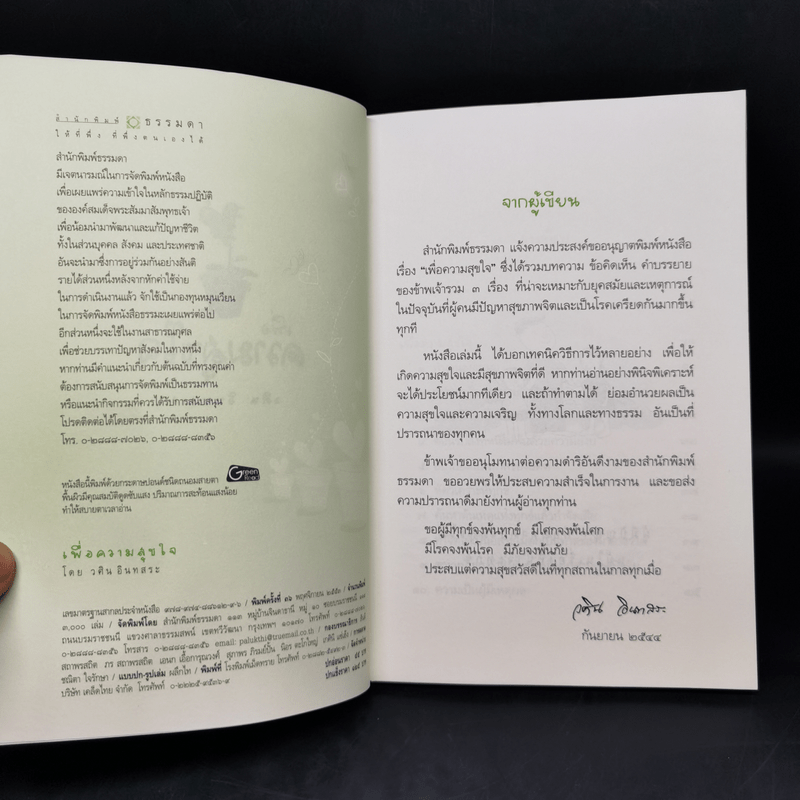 สำนักพิมพ์ ธรรมดา
ให้ที่พึ่ง ที่พึ่งตนเองได้
สำนักพิมพ์ธรรมดา
มีเจตนารมณ์ในการจัดพิมพ์หนังสือ
เพื่อเผยแพร่ความเข้าใจในหลักธรรมปฏิบัติ
ขององค์สมเด็จพระสัมมาสัมพุทธเจ้า
เพื่อน้อมนำมาพัฒนาและแก้ปัญหาชีวิต
ทั้งในส่วนบุคคล สังคม และประเทศชาติ
อันจะนำมาซึ่งการอยู่ร่วมกันอย่างสันติ
รายได้ส่วนหนึ่งหลังจากหักค่าใช้จ่าย
ในการดำเนินงานแล้ว จักใช้เป็นกองทุนหมุนเวียน
ในการจัดพิมพ์หนังสือธรรมะเผยแพร่ต่อไป
อีกส่วนหนึ่งจะใช้ในงานสาธารณกุศล
เพื่อช่วยบรรเทาปัญหาสังคมในทางหนึ่ง
หากท่านมีคำแนะนำเกี่ยวกับต้นฉบับที่ทรงคุณค่า
ต้องการสนับสนุนการจัดพิมพ์เป็นธรรมทาน
หรือแนะนำกิจกรรมที่ควรได้รับการสนับสนุน
โปรดติดต่อได้โดยตรงที่สำนักพิมพ์ธรรมดา
โทร. ๐-๒๘๘๘-๗๐๒๖, ๐-๒๘๘๘-๘๓๕๖
หนังสือนี้พิมพ์ด้วยกระดาษปอนด์ชนิดถนอมสายตา
พื้นผิวมีคุณสมบัติดูดซับแสง ปริมาณการสะท้อนแสงน้อย
ทำให้สบายตาเวลาอ่าน
Green
เพื่อความสุขใจ
โดย วศิน อินทสระ
เลขมาตรฐานสากลประจำหนังสือ ๙๗๘-๙๗๔-๘๘๖๑๒-๙-๖ / พิมพ์ครั้งที่ ๓๖ พฤศจิกายน ๒๕๕๐ / จำนวนพิมพ์
๓,๐๐๐ เล่ม / จัดพิมพ์โดย สำนักพิมพ์ธรรมดา ๑๑๓ หมู่บ้านจินดาธานี หมู่ ๑๐ ซอยบรมราชชนนี
ถนนบรมราชชนนี แขวงศาลาธรรมสพน์ เขตทวีวัฒนา กรุงเทพฯ ๑๐๑๗๐ โทรศัพท์
๐-๒๘๘๘-๘๓๕๖ โทรสาร email: palukthi@truemail.co.th / กองบรรณาธิการ
จากผู้เขียน
สำนักพิมพ์ธรรมดา แจ้งความประสงค์ขออนุญาตพิมพ์หนังสือ
เรื่อง “เพื่อความสุขใจ” ซึ่งได้รวมบทความ ข้อคิดเห็น คำบรรยาย
ของข้าพเจ้ารวม ๓ เรื่อง ที่น่าจะเหมาะกับยุคสมัยและเหตุการณ์
ในปัจจุบันที่ผู้คนมีปัญหาสุขภาพจิตและเป็นโรคเครียดกันมากขึ้น
ทุกที
หนังสือเล่มนี้ ได้บอกเทคนิควิธีการไว้หลายอย่าง เพื่อให้
เกิดความสุขใจและมีสุขภาพจิตที่ดี หากท่านอ่านอย่างพินิจพิเคราะห์
จะได้ประโยชน์มากทีเดียว และถ้าทำตามได้ ย่อมอำนวยผลเป็น
ความสุขใจและความเจริญ ทั้งทางโลกและทางธรรม อันเป็นที่
ปรารถนาของทุกคน
ข้าพเจ้าขออนุโมทนาต่อความดำริอันดีงามของสำนักพิมพ์
ธรรมดา ขออวยพรให้ประสบความสำเร็จในการงาน และขอส่ง
ความปรารถนาดีมายังท่านผู้อ่านทุกท่าน
ขอผู้มีทุกข์จงพ้นทุกข์ มีโศกจงพ้นโศก
มีโรคจงพ้นโรค มีภัยจงพ้นภัย
ประสบแต่ความสุขสวัสดีในที่ทุกสถานในกาลทุกเมื่อ
วศิน อินทสระ
กันยายน ๒๕๔๔